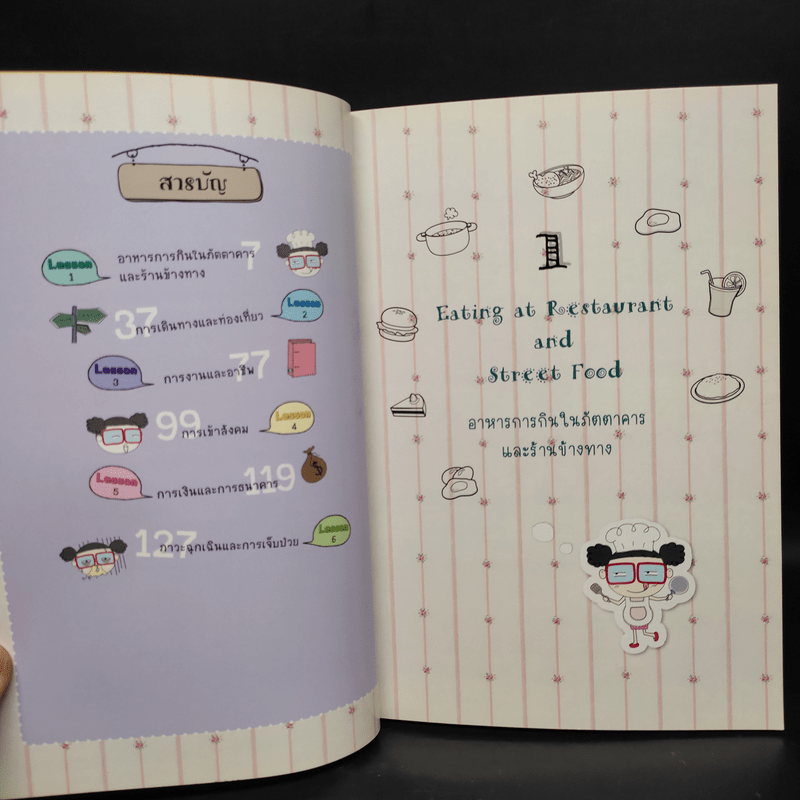 สารบัญ
Lesson 1
อาหารการกินในภัตตาคาร 7
และร้านข้างทาง
37 การเดินทางและท่องเที่ยว
Lesson 2
Lesson 3
การงานและอาชีพ 77
99 การเข้าสังคม
Lesson 4
Lesson 5
การเงินและการธนาคาร 119
127 ภาวะฉุกเฉินและการเจ็บป่วย
Lesson 6
1
Eating at Restaurant
and
Street Food
อาหารการกินในภัตตาคาร
และร้านข้างทาง